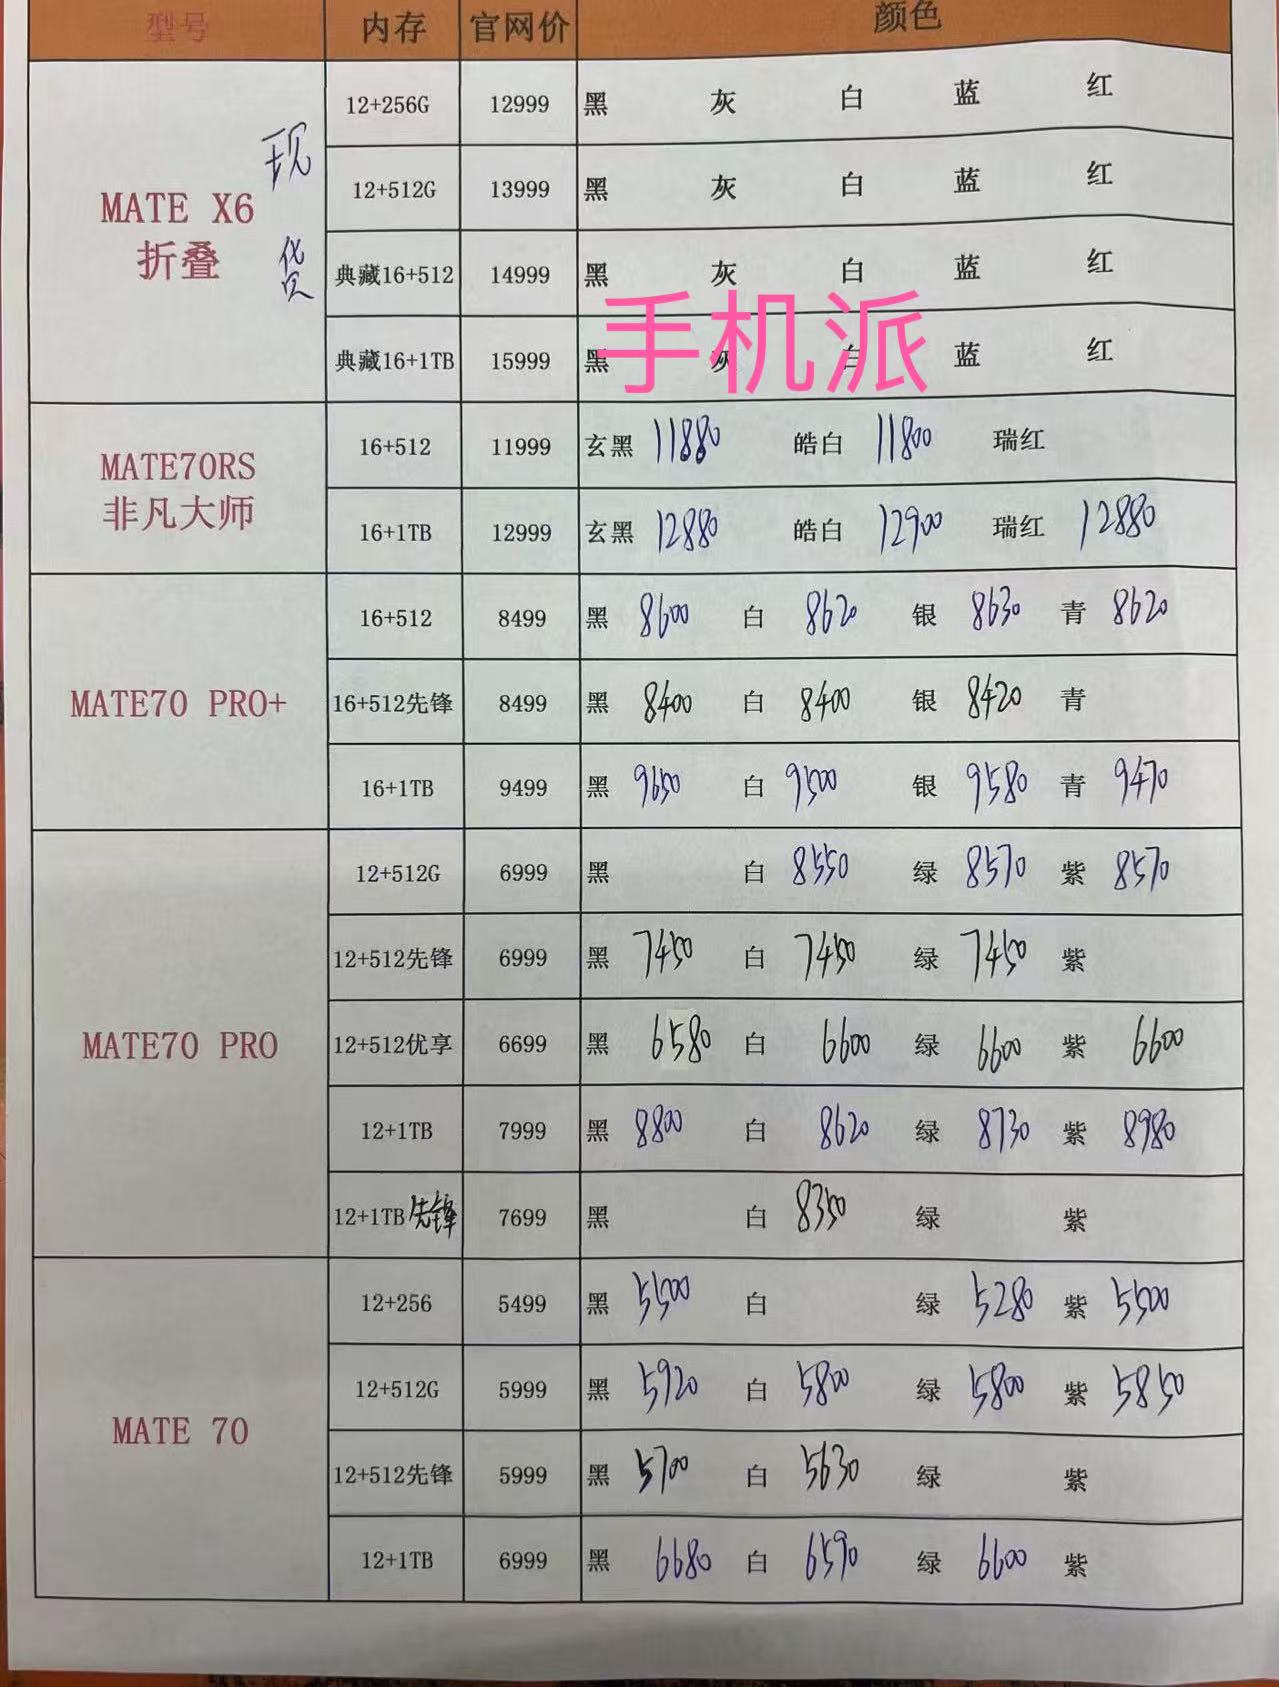 型号 内存 官网价 颜色
MATE X6
折叠
现
货
12+256G 12999 黑 灰 白 蓝 红
12+512G 13999 黑 灰 白 蓝 红
典藏16+512 14999 黑 灰 白 蓝 红
手机派
典藏16+1TB 15999 黑 灰 白 蓝 红
MATE70RS
非凡大师
16+512 11999 玄黑 11880 皓白 11800 瑞红
16+1TB 12999 玄黑 12880 皓白 12900 瑞红 12880
MATE70 PRO+
16+512 8499 黑 8600 白 8620 银 8630 青 8620
16+512先锋 8499 黑 8400 白 8400 银 8420 青
16+1TB 9499 黑 9650 白 9500 银 9580 青 9470
MATE70 PRO
12+512G 6999 黑 白 8550 绿 8570 紫 8570
12+512先锋 6999 黑 7450 白 7450 绿 7450 紫
12+512优享 6699 黑 6580 白 6600 绿 6600 紫 6600
12+1TB 7999 黑 8800 白 8620 绿 8730 紫 8980
12+1TB先锋 7699 黑 白 8350 绿 紫
MATE 70
12+256 5499 黑 5500 白 绿 5280 紫 5500
12+512G 5999 黑 5920 白 5800 绿 5800 紫 5850
12+512先锋 5999 黑 5700 白 5630 绿 紫
12+1TB 6999 黑 6680 白 6590 绿 6600 紫